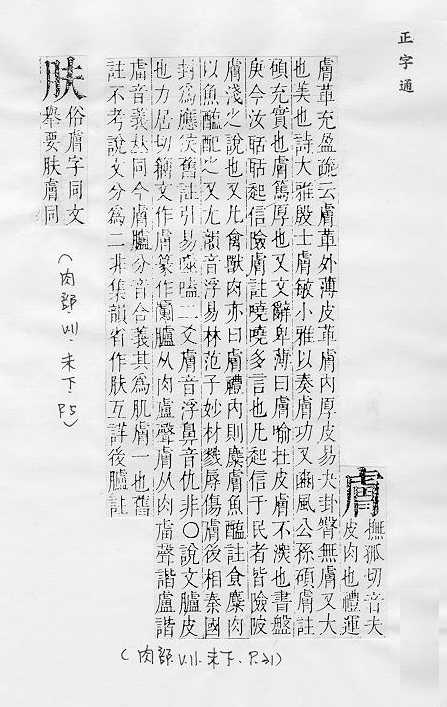 正字通
膚
撫狐切音夫
皮肉也禮運
膚革充盈疏云膚革外薄皮革膚內厚皮易夬卦臀無膚又大
也美也詩大雅殷士膚敏小雅以奏膚功又豳風公孫碩膚註
碩充實也膚篤厚也又文辭卑薄曰膚喻在皮膚不深也書盤
庚今汝聒聒起信險膚註嘵嘵多言也凡起信于民者皆險陂
膚淺之說也又凡禽獸肉亦曰膚禮內則麋膚魚醢註食麋肉
以魚醢配之又尤韻音浮易林范子妙材戮辱傷膚後相秦國
封為應侯舊註引易噬嗑二爻膚音浮鼻音仇非〇說文臚皮
也力居切籀文作膚篆作臚从肉盧聲膚从肉𧆨聲諧盧諧
𧆨音義𠀤同今膚臚分音合義其為肌膚一也舊
註不考說文分為二非集韻省作肤互詳後臚註
(肉部 VII.未下.P.21)
肤
俗膚字同文
舉要肤膚同
(肉部 VII.未下.P.5)